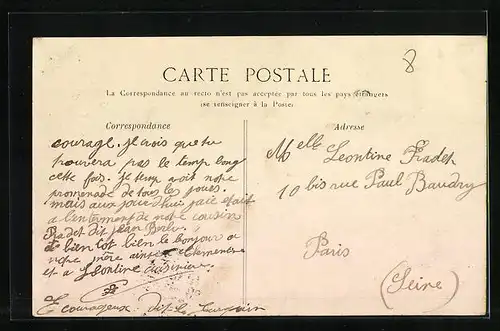 8
CARTE POSTALE
La Correspondance au recto n'est pas acceptée par tous les pays étrangers
(se renseigner à la Poste)
Correspondance
Adresse
courage. je crois que tu
trouvera pas le temp long
cette fois. je
promenade de tous les jours.
mais aux jourd'hui
a l'enterment de notre cousin
Pradet dit jean
a bien tot bien le bonjour a
notre mère ainsi a Clemence
et a Leontine cuisinier.
courageux dit le
Melle Leontine Pradet
10 bis rue Paul Baudry
Paris
(Seine)